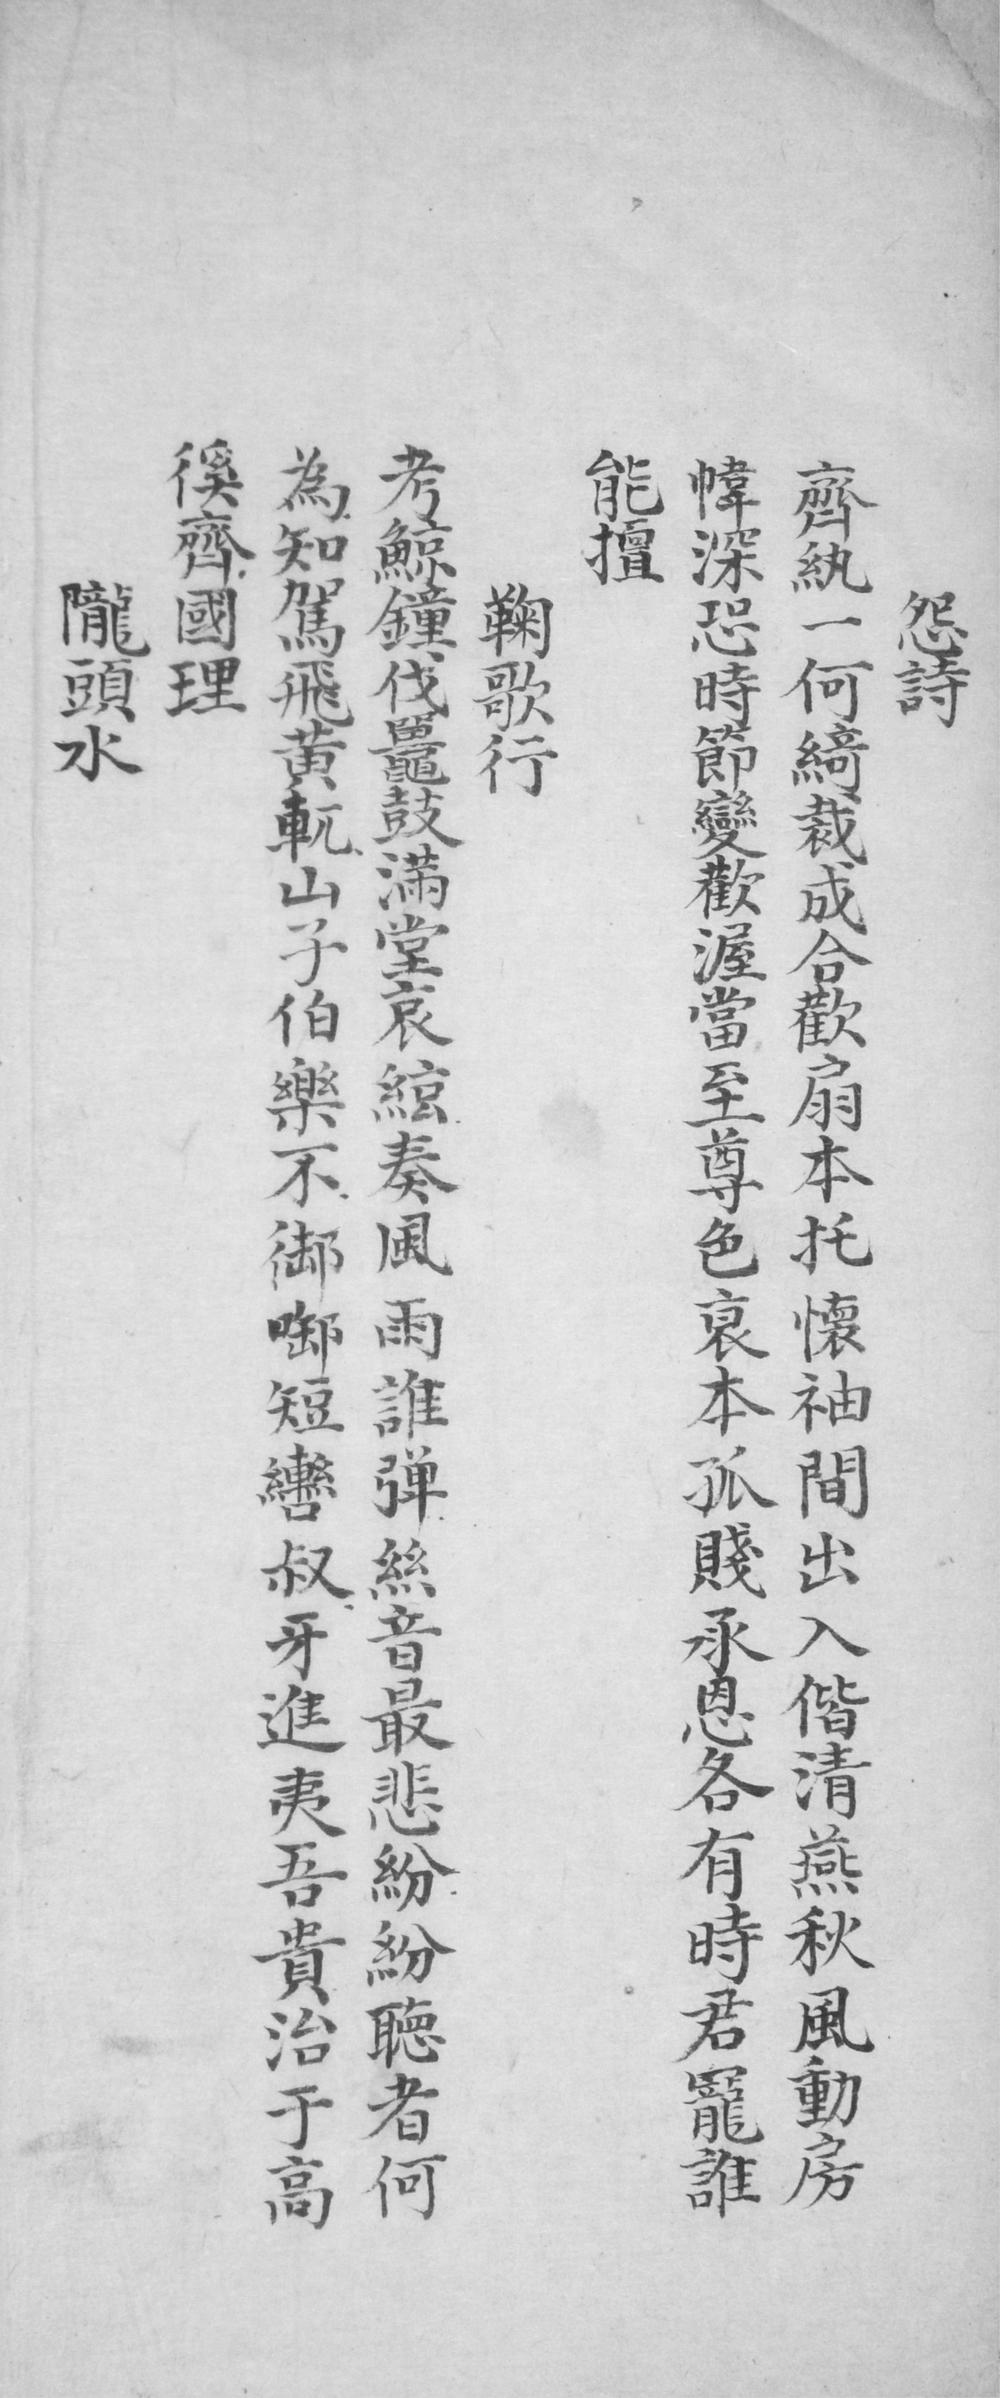 怨詩
齊紈一何綺裁成合歡扇本托懷袖間出入偕清燕秋風動房
幃深恐時節變歡渥當至尊色哀本孤賤承恩各有時君寵誰
能擅
鞠歌行
考鯨鐘伐鼉鼓滿堂哀絃奏風雨誰弹絲音最悲紛紛聽者何
為知駕飛黃軏山子伯樂不御啣短轡叔牙進夷吾貴治于高
徯齊國理
隴頭水